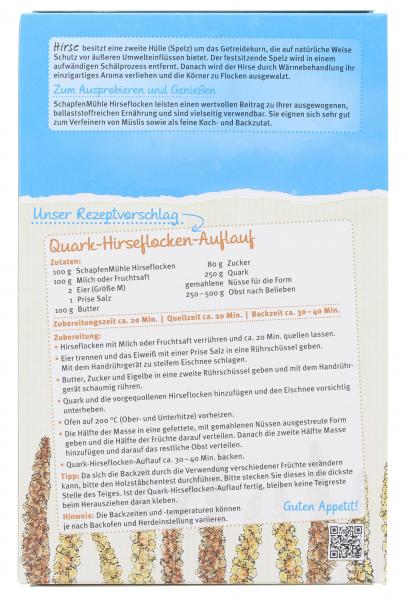 Hirse besitzt eine zweite Hülle (Spelz) um das Getreidekorn, die auf natürliche Weise
Schutz vor äußeren Umwelteinflüssen bietet. Der festsitzende Spelz wird in einem
aufwändigen Schälprozess entfernt. Danach wird der Hirse durch Wärmebehandlung ihr
einzigartiges Aroma verliehen und die Körner zu Flocken ausgewalzt.
Zum Ausprobieren und Genießen
SchapfenMühle Hirseflocken leisten einen wertvollen Beitrag zu Ihrer ausgewogenen,
ballaststoffreichen Ernährung und sind vielseitig verwendbar. Sie eignen sich sehr gut
zum Verfeinern von Müslis sowie als feine Koch- und Backzutat.
Unser Rezeptvorschlag
Quark-Hirseflocken-Auflauf
Zutaten:
100 g SchapfenMühle Hirseflocken
100 g Milch oder Fruchtsaft
2 Eier (Größe M)
1 Prise Salz
100 g Butter
80 g Zucker
250 g Quark
gemahlene Nüsse für die Form
250–500 g Obst nach Belieben
Zubereitungszeit ca. 20 Min. | Quellzeit ca. 20 Min. | Backzeit ca. 30–40 Min.
Zubereitung:
• Hirseflocken mit Milch oder Fruchtsaft verrühren und ca. 20 Min. quellen lassen.
• Eier trennen und das Eiweiß mit einer Prise Salz in eine Rührschüssel geben.
Mit dem Handrührgerät zu steifem Eischnee schlagen.
• Butter, Zucker und Eigelbe in eine zweite Rührschüssel geben und mit dem Handrühr-
gerät schaumig rühren.
• Quark und die vorgequollenen Hirseflocken hinzufügen und den Eischnee vorsichtig
unterheben.
• Ofen auf 200 °C (Ober- und Unterhitze) vorheizen.
• Die Hälfte der Masse in eine gefettete, mit gemahlenen Nüssen ausgestreute Form
geben und die Hälfte der Früchte darauf verteilen. Danach die zweite Hälfte Masse
hinzufügen und darauf das restliche Obst verteilen.
• Quark-Hirseflocken-Auflauf ca. 30–40 Min. backen.
Tipp: Da sich die Backzeit durch die Verwendung verschiedener Früchte verändern
kann, bitte den Holzstäbchentest durchführen. Bitte stecken Sie dieses in die dickste
Stelle des Teiges. Ist der Quark-Hirseflocken-Auflauf fertig, bleiben keine Teigreste
beim Herausziehen daran kleben.
Hinweis: Die Backzeiten und -temperaturen können
je nach Backofen und Herdeinstellung variieren.
Guten Appetit!